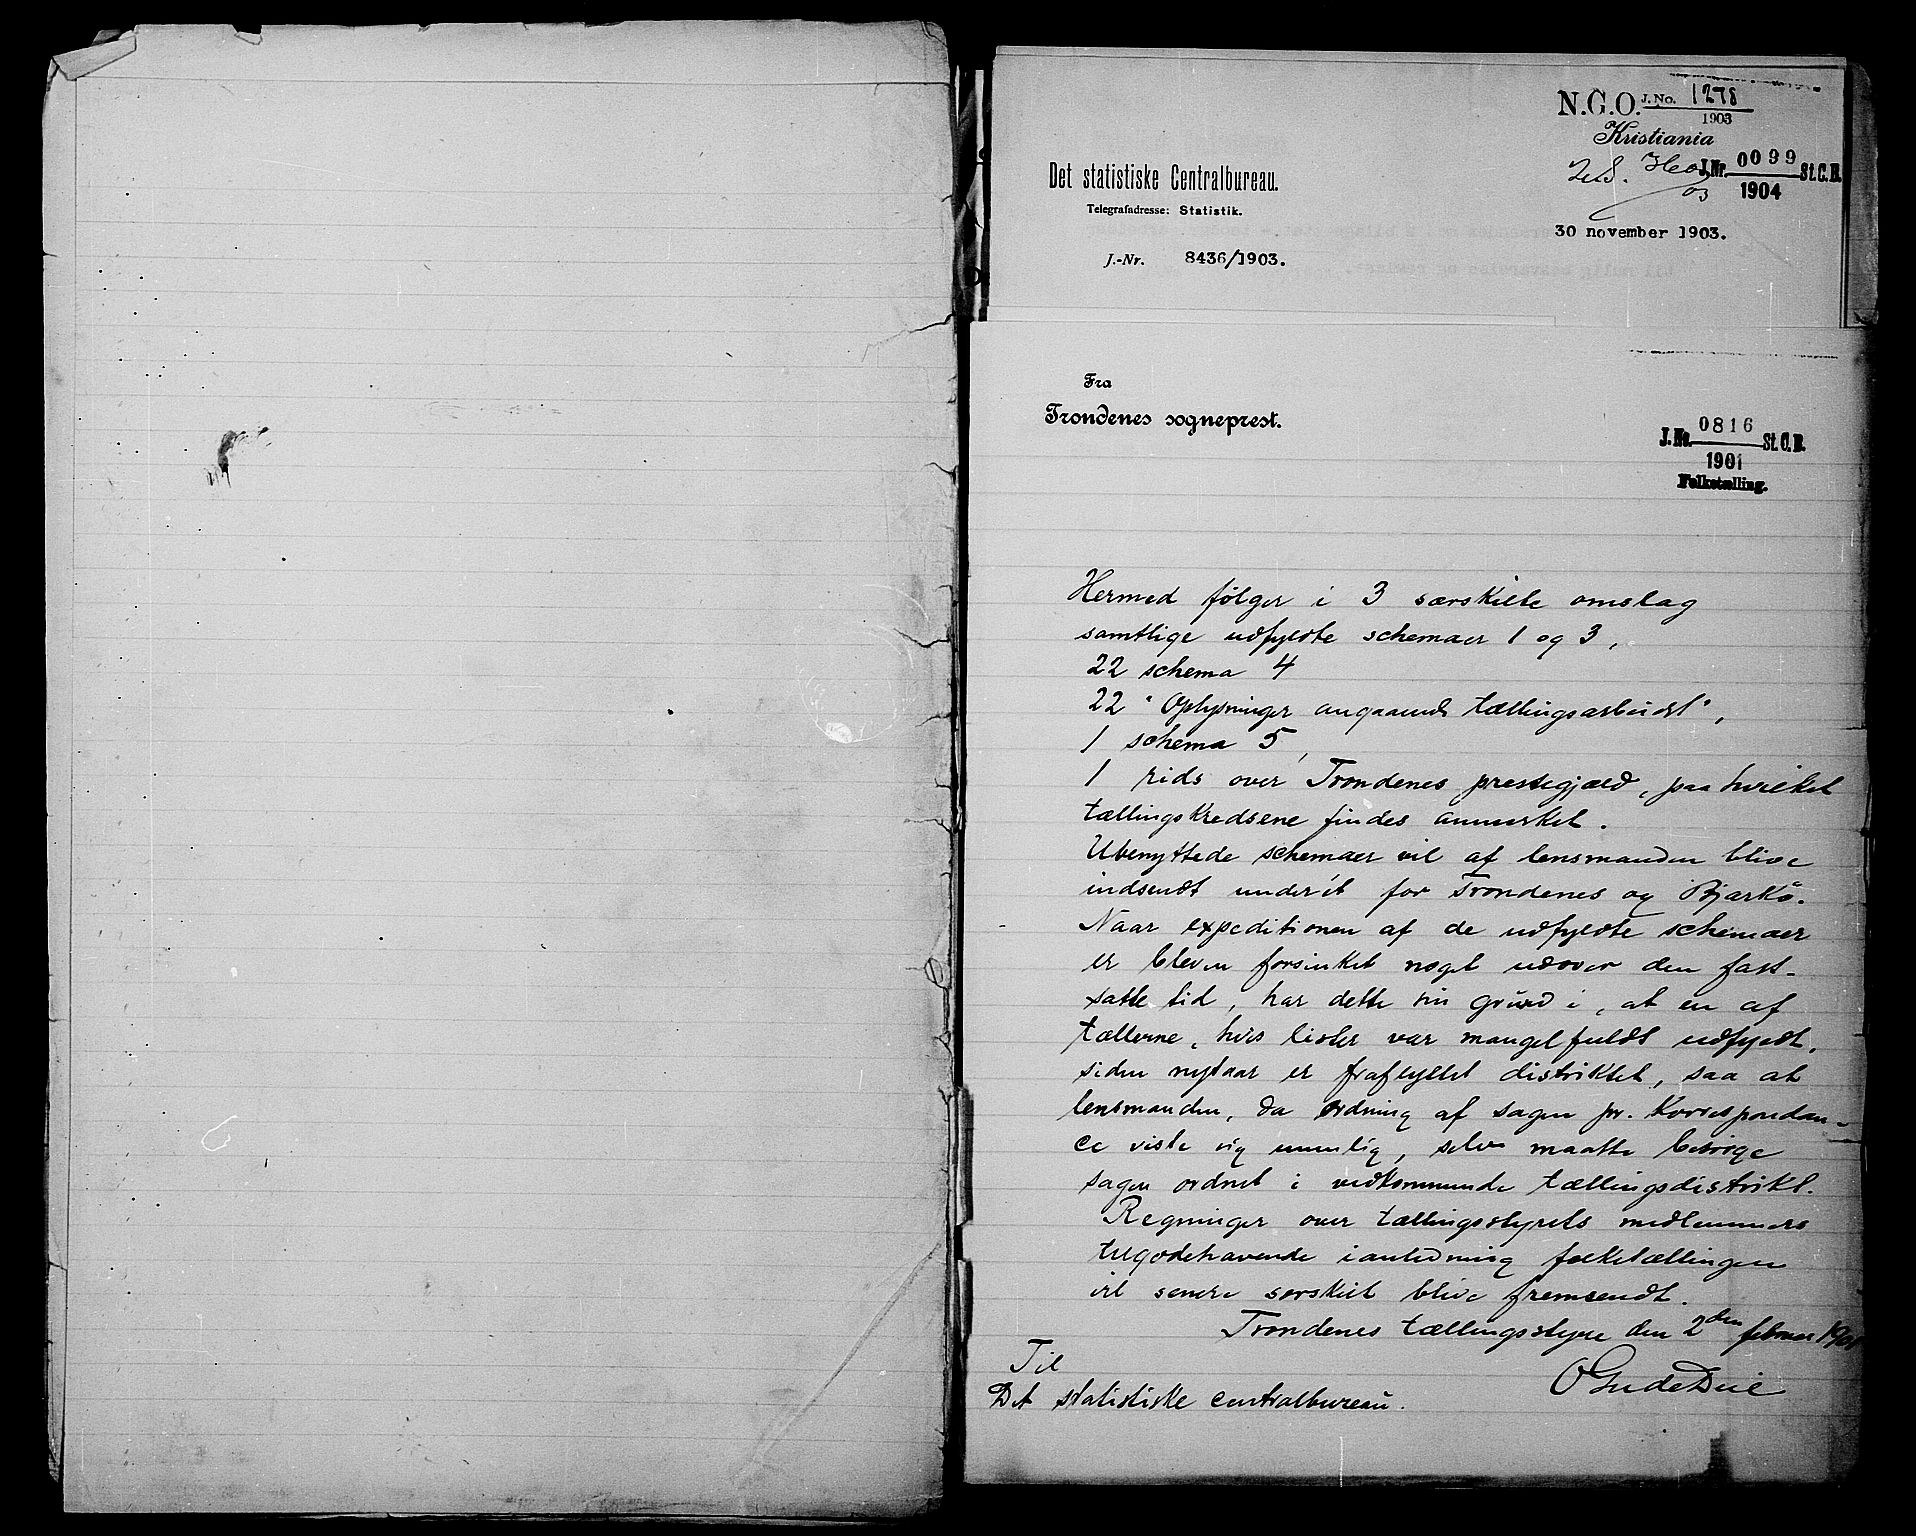 N.G.O. J. No. 1278
1903
Kristiania
J.Nr. 0099 St.C.B.
03 1904
Det statistiske Centralbureau.
Telegrafadresse: Statistik.
30 november 1903.
J.-Nr. 8436/1903.
Fra
Trondenes sogneprest.
J. No. 0816 St.C.B.
1901
Folketælling.
Hermed følger i 3 særskilte omslag
samtlige udfyldte schemaer 1 og 3,
22 schema 4
22 "Oplysninger angaaende tællingsarbeidet",
1 schema 5,
1 rids over Trondenes prestegjæld, paa hvilket
tællingskredsene findes anmerket.
Ubenyttede schemaer vil af lensmanden blive
indsendt underét for Trondenes og Bjarkö.
Naar expeditionen af de udfyldte schemaer
er bleven forsinket noget udover den fast-
satte tid, har dette sin grund i, at en af
tællerne, hvis lister var mangelfuldt udfyldt,
siden nytaar er fraflyttet distriktet, saa at
lensmanden, da ordning af sagen pr. korrespondan-
ce viste sig umulig, selv maatte besørge
sagen ordnet i vedkommende tællingsdistrikt.
Regninger over tællingsstyrets medlemmers
tilgodehavende i anledning folketællingen
vil senere særskilt blive fremsendt.
Trondenes tællingsstyre den 2den februar 1901
O Gude Due
Til
Det statistiske centralbureau.